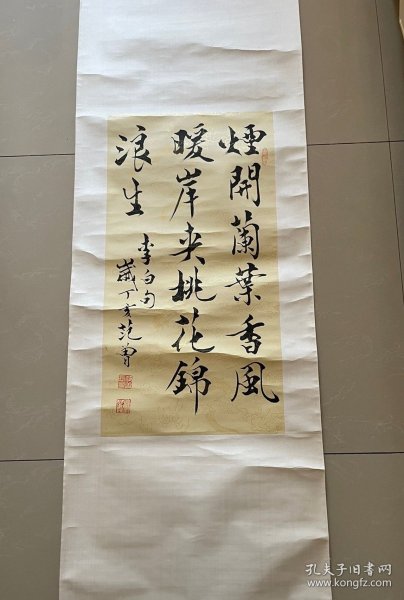 煙開蘭葉香風
暖岸夾桃花錦
浪生
李白句
歲丁亥范曾
孔夫子旧书网
www.kongfz.com